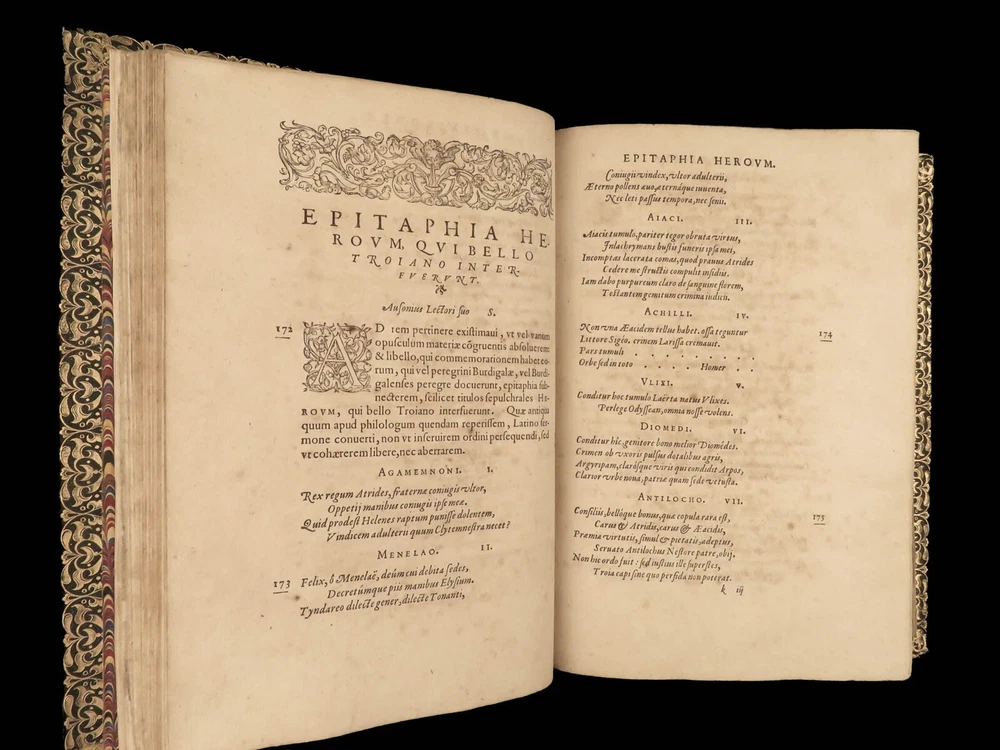 EPITAPHIA HE-
ROVM, QVI BELLO
TROIANO INTER-
FVERVNT.
Ausonius Lectori suo S.
172
AD rem pertinere existimaui, vt vel vanum
opusculum materiæ cõgruentis absoluerem:
& libello, qui commemorationem habet eo-
rum, qui vel peregrini Burdigalæ, vel Burdi-
galenses peregre docuerunt, epitaphia sub-
necterem, scilicet titulos sepulchrales HE-
ROVM, qui bello Troiano interfuerunt. Quæ antiqua
quum apud philologum quendam reperissem, Latino ser-
mone conuerti, non vt inseruirem ordini persequendi, sed
vt cohærerem libere, nec aberrarem.
AGAMEMNONI. I.
Rex regum Atrides, fraternæ coniugis vltor,
Oppetij manibus coniugis ipse meæ.
Quid prodest Helenes raptum punisse dolentem,
Vindicem adulterii quum Clytemnestra necet?
MENELAO. II.
173
Felix, ô Menelaë, deûm cui debita sedes,
Decretúmque piis manibus Elysium.
Tyndareo dilecte gener, dilecte Tonanti,
EPITAPHIA HEROVM.
Coniugii vindex, vltor adulterii,
Æterno pollens æuo, æternáque iuuenta,
Nec leti passus tempora, nec senii.
AIACI. III.
Aiacis tumulo, pariter tegor obruta virtus,
Inlachrymans bustis funeris ipsa mei,
Incomptas lacerata comas, quod prauus Atrides
Cedere me structis compulit insidiis.
Iam dabo purpureum claro de sanguine florem,
Testantem gemitum crimina iudicii.
ACHILLI. IV.
Non vna Æacidem tellus habet. ossa teguntur
174
Littore Sigeo. crinem Larissa cremauit.
Pars tumuli . . . . . . . . .
Orbe sed in toto . . . . Homer . .
VLIXI. V.
Conditur hoc tumulo Laërta natus Vlixes.
Perlege Odyssean, omnia nosse volens.
DIOMEDI. VI.
Conditur hîc, genitore bono melior Diomedes.
Crimen ob vxoris pulsus dotalibus agris,
Argyripam, clarósque viris qui condidit Arpos,
Clarior vrbe noua, patriæ quam sede vetusta.
ANTILOCHO. VII.
Consiliis, bellóque bonus, quæ copula rara est,
175
Carus & Atridis, carus & Æacidis,
Præmia virtutis, simul & pietatis, adeptus,
Seruato Antilochus Nestore patre, obij.
Non hic ordo fuit: sed iustius ille superstes,
Troia capi sine quo perfida non poterat.
k iij